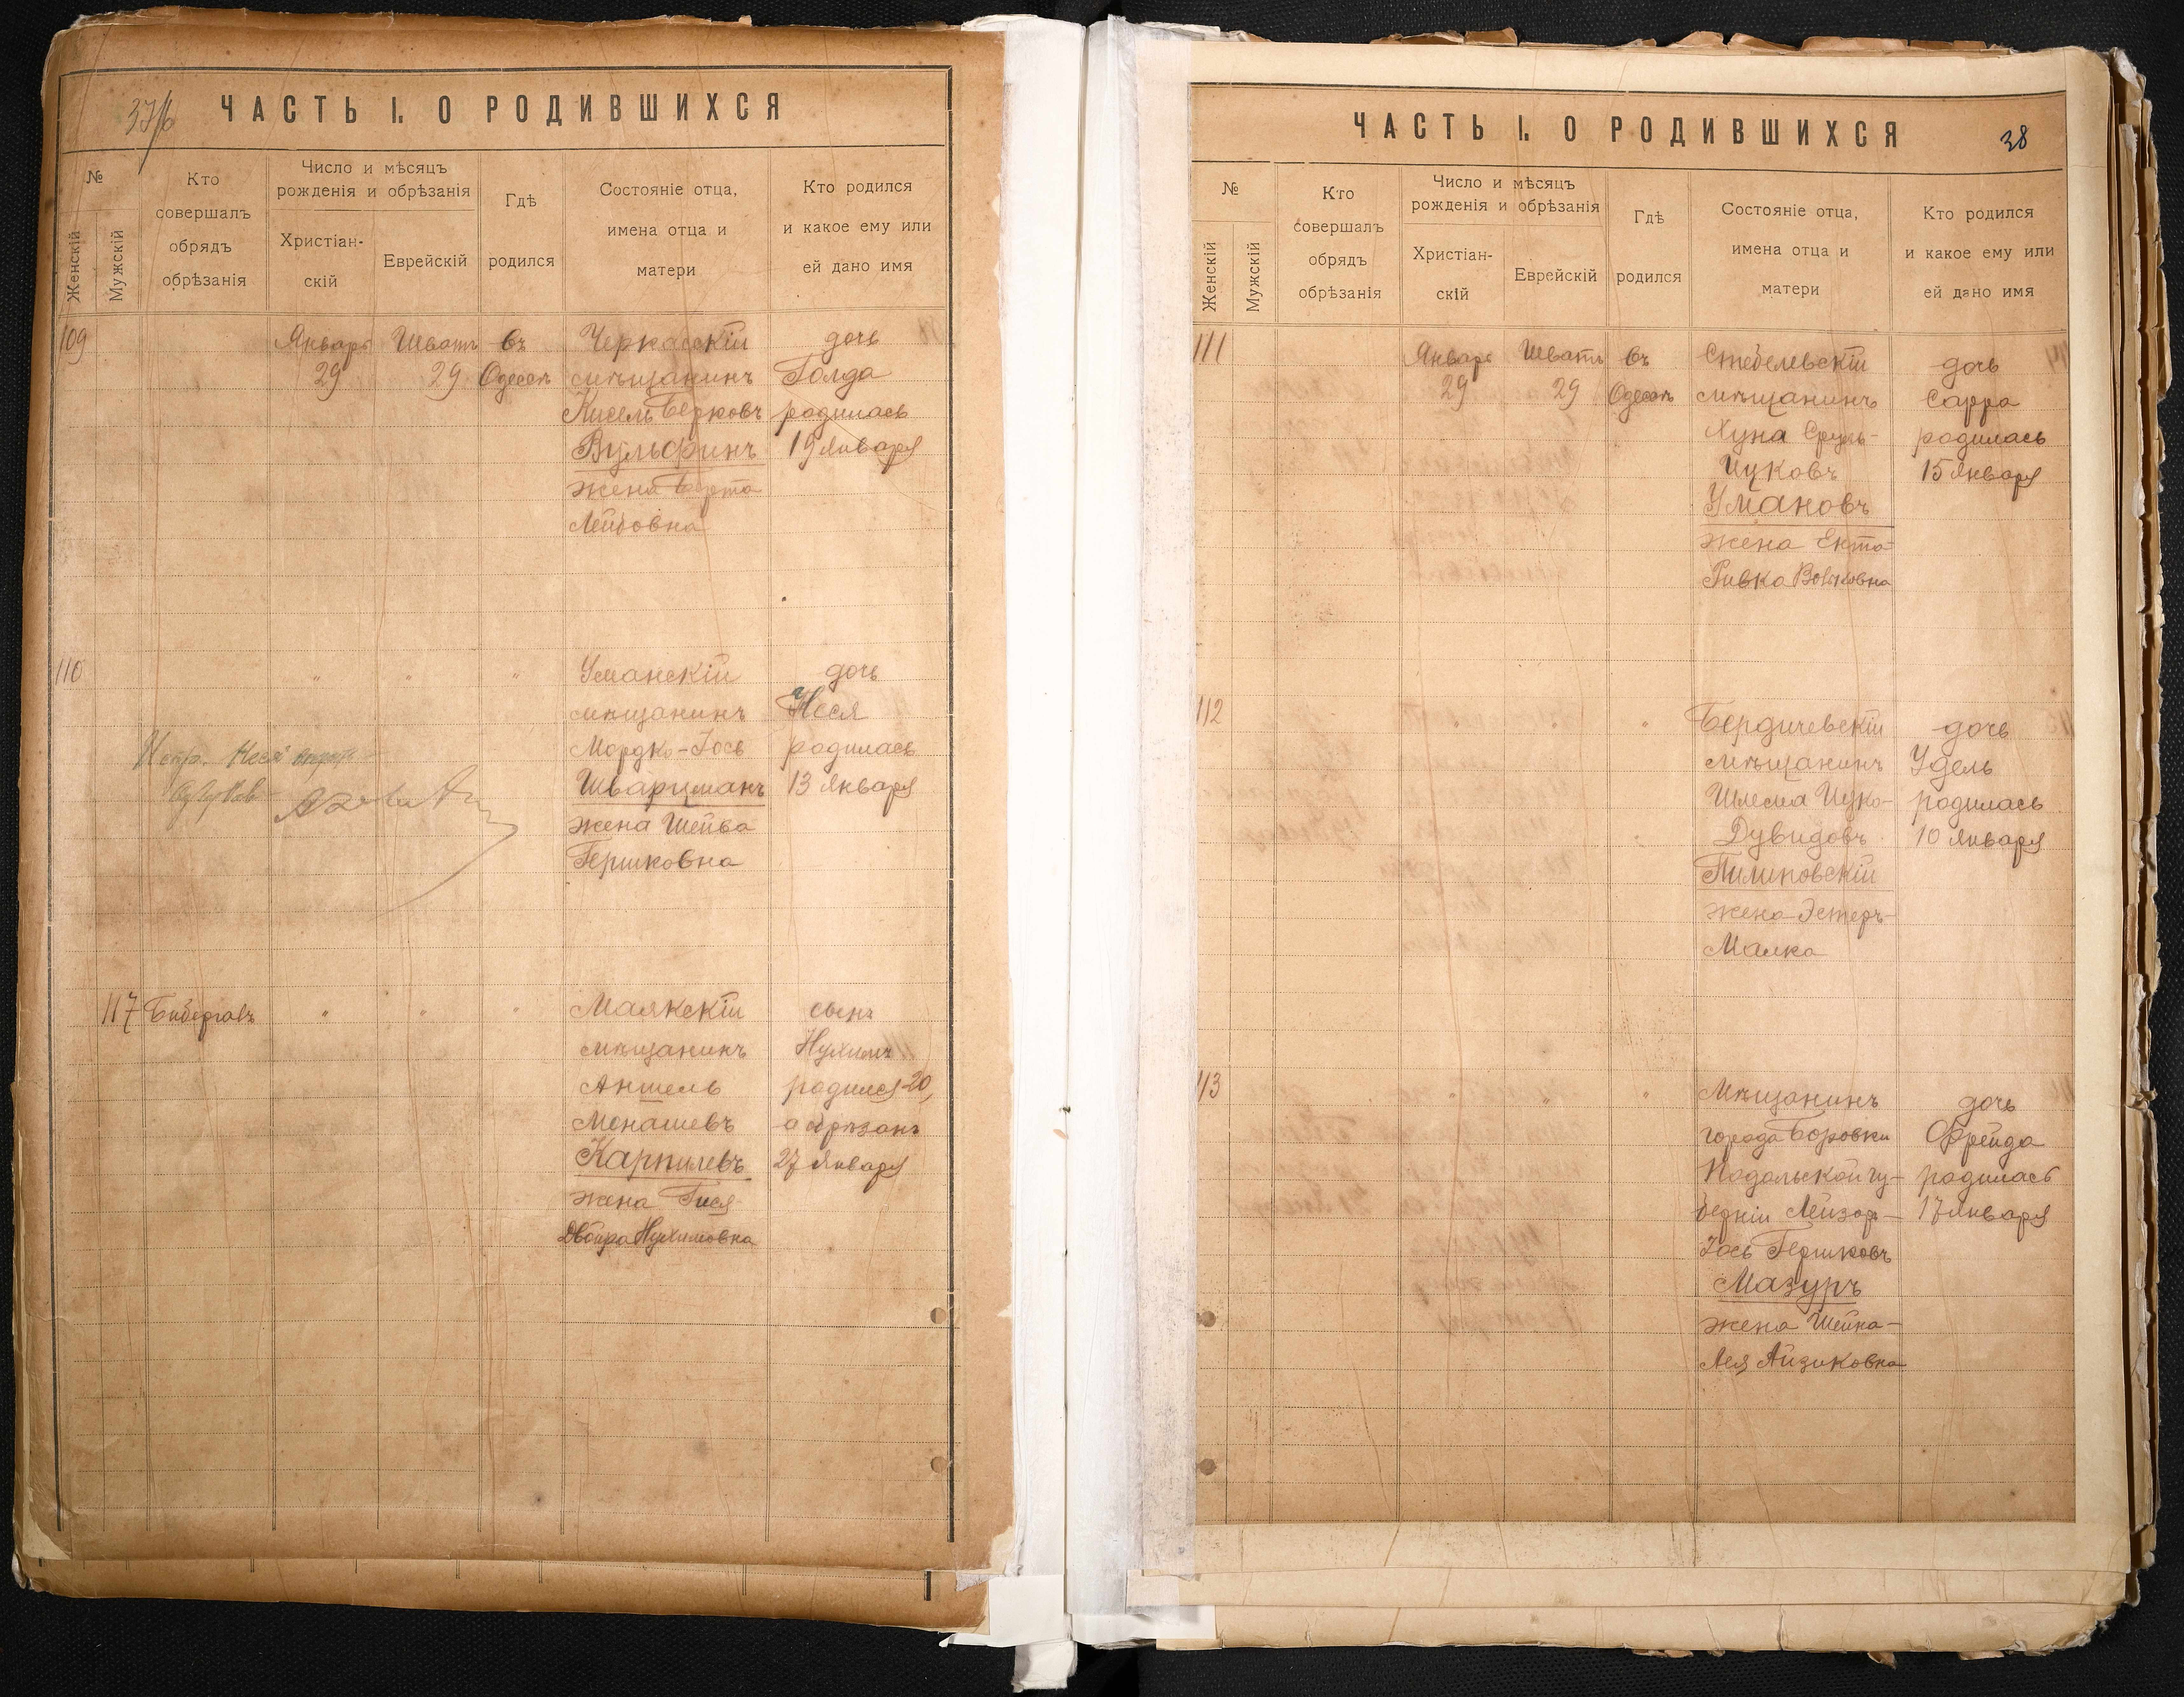 37/б
ЧАСТЬ I. О РОДИВШИХСЯ
№
Женскій
Мужскій
Кто
совершалъ
обрядъ
обрѣзанія
Число и мѣсяцъ
рожденія и обрѣзанія
Христіан-
скій
Еврейскій
Гдѣ
родился
Состояніе отца,
имена отца и
матери
Кто родился
и какое ему или
ей дано имя
109
Январь
29
Шватъ
29
въ
Одессѣ
Черкасскій
мѣщанинъ
Кисель Берковъ
Вульфинъ
жена Берта
Лейбовна
дочь
Голда
родилась
19 января
110
" " "
Испр. Неся
Уманскій
мѣщанинъ
Мордко-Іось
Шварцманъ
жена Шейва
Гершковна
дочь
Неся
родилась
13 января
117
" " "
Маякскій
мѣщанинъ
Аншель
Монашевъ
Карпилевъ
жена Гися
Двойра Нухимовна
сынъ
Нухимъ
родился 20,
а обрѣзанъ
27 января
ЧАСТЬ I. О РОДИВШИХСЯ
38
№
Женскій
Мужскій
Кто
совершалъ
обрядъ
обрѣзанія
Число и мѣсяцъ
рожденія и обрѣзанія
Христіан-
скій
Еврейскій
Гдѣ
родился
Состояніе отца,
имена отца и
матери
Кто родился
и какое ему или
ей дано имя
111
Январь
29
Шватъ
29
въ
Одессѣ
Стебелевскій
мѣщанинъ
Хуна Сруль-
Ицковъ
Умановъ
жена Ента-
Ривка Вольковна
дочь
Сарра
родилась
15 января
112
" " "
Бердичевскій
мѣщанинъ
Шлема Ицко-
Дувидовъ
Пилиповскій
жена Эстеръ-
Малка
дочь
Удель
родилась
10 января
113
" " "
Мѣщанинъ
города Боровки
Подольской гу-
берніи Лейзор-
Іось Гершковъ
Мазуръ
жена Шейна-
Лея Айзиковна
дочь
Фрейда
родилась
17 января